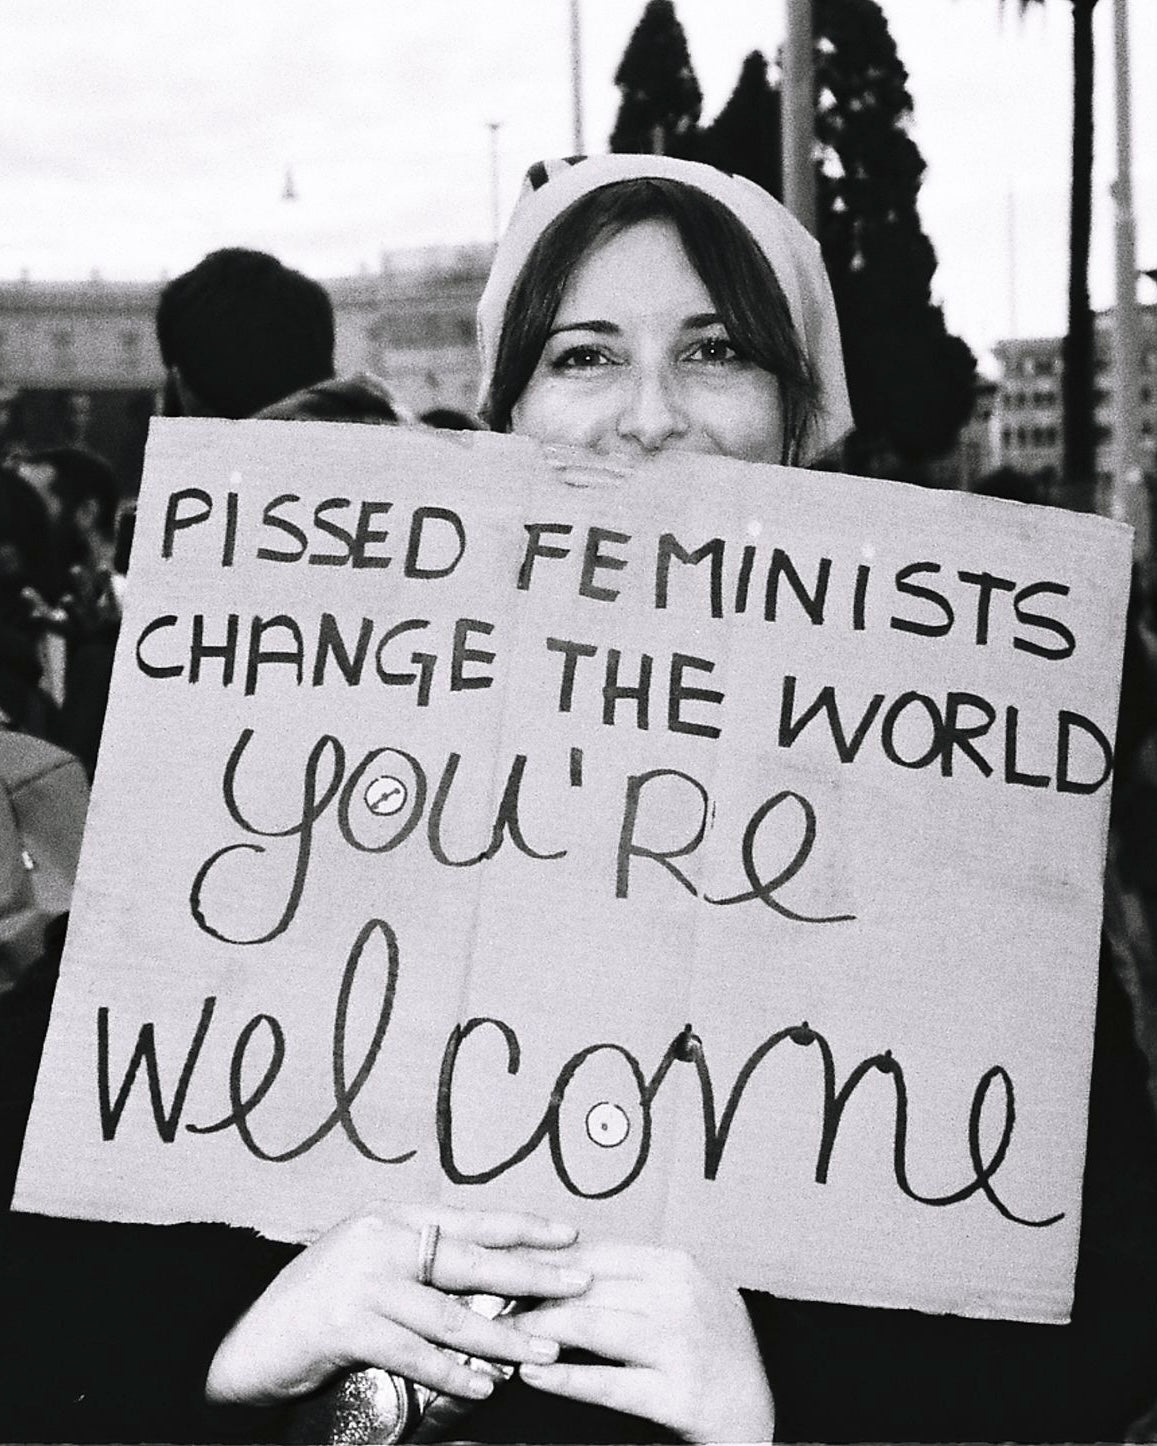 PISSED FEMINISTS
CHANGE THE WORLD
you'Re
welcome